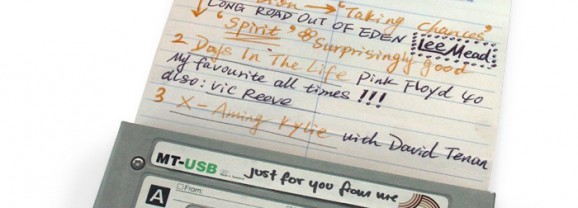 "Taking Chances"
LONG ROAD OUT OF EDEN
"Spirit" Surprisingly good Lee Mead
2 Days In The Life Pink Floyd 40
My favourite all times !!!
also: Vic Reeve
3 X-Aming Kylie with David Tenan
MT-USB just for you from me
A From: